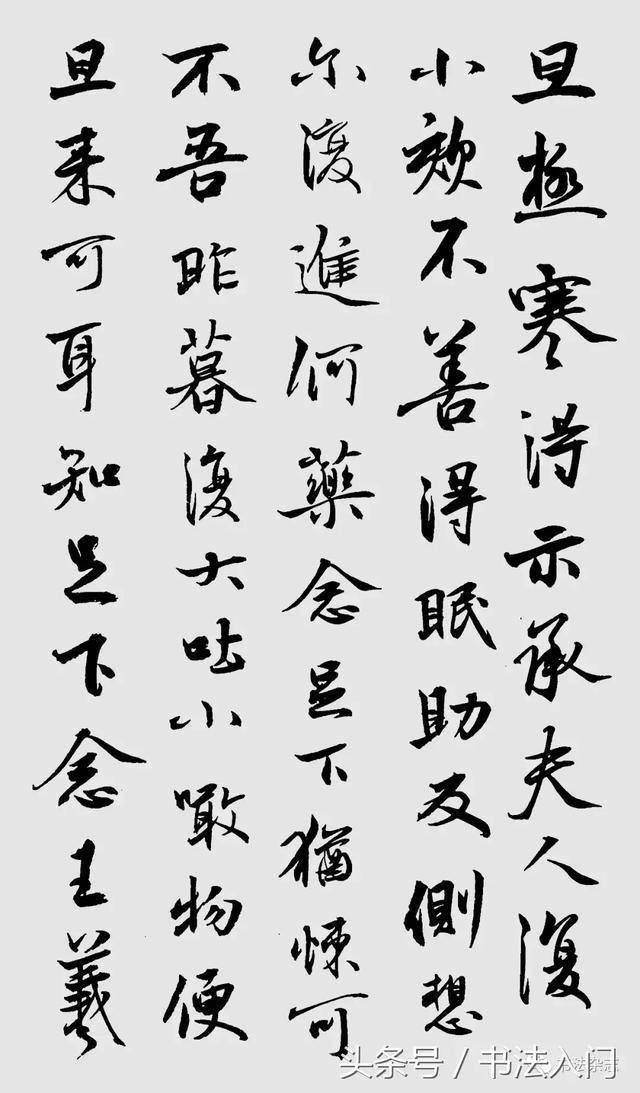 旦極寒得示承夫人復
小欬不善得眠助反側想
尔復進何藥念足下猶悚可
不吾昨暮復大吐小噉物便
旦来可耳知足下念王羲
头条号／书法入门
书法杂志